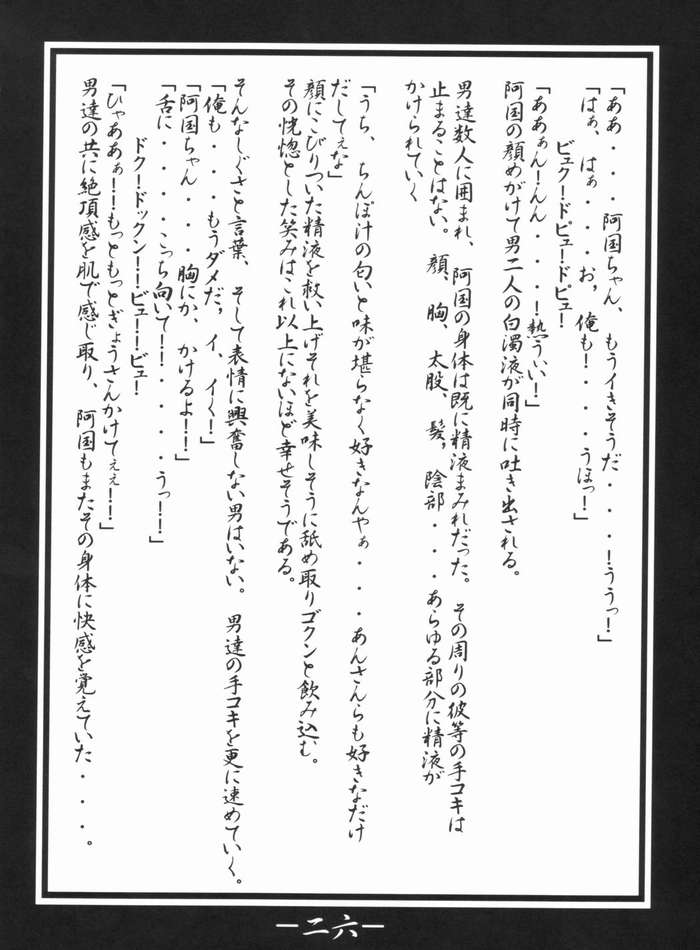 「ああ・・・阿国ちゃん、もうイきそうだ・・・！ううっ！」
「はぁ、はぁ・・・お，俺も！・・・・うほっ！」
ビュク！ドビュー！ドピュ！
「ああぁん！んん・・・！熱うぃぃ！」
阿国の顔めがけて男二人の白濁液が同時に吐き出される。
男達数人に囲まれ、阿国の身体は既に精液まみれだった。その周りの彼等の手コキは
止まることはない。顔，胸，太股，髪，陰部・・・あらゆる部分に精液が
かけられていく
「うち、ちんぽ汁の匂いと味が堪らなく好きなんやぁ・・・あんさんらも好きなだけ
だしてぇな」
顔にこびりついた精液を救い上げそれを美味しそうに舐め取りゴクンと飲み込む。
その恍惚とした笑みはこれ以上にないほど幸せそうである。
そんなしぐさと言葉、そして表情に興奮しない男はいない。男達の手コキを更に速めていく。
「俺も・・・もうダメだ，イ，イく！」
「阿国ちゃん・・・胸にか，かけるよ！！」
「舌に・・・・こっち向いて！！・・・・うっ！！」
ドク！ドックン！！ビュー！！ビュ！
「ひゃああぁ！！もっともっとぎょうさんかけてぇぇ！！」
男達の共に絶頂感を肌で感じ取り、阿国もまたその身体に快感を覚えていた・・・。
－二六－